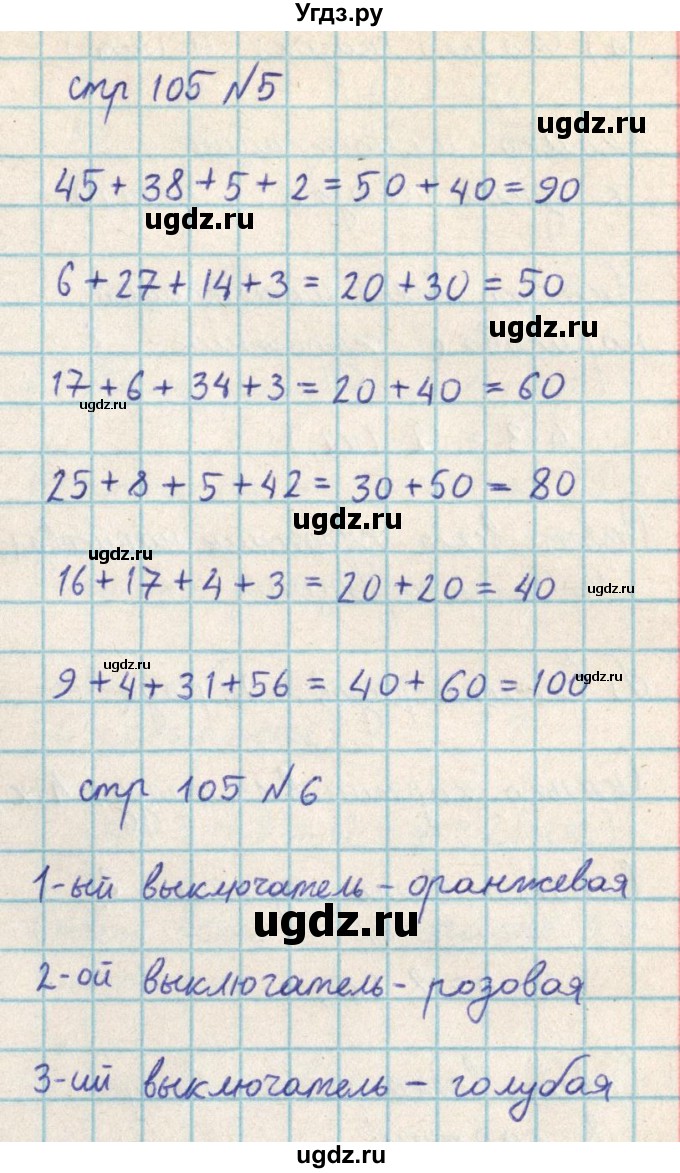 Угдз.ру
стр 105 №5
ugdz.ru
45 + 38 + 5 + 2 = 50 + 40 = 90
ugdz.ru
6 + 27 + 14 + 3 = 20 + 30 = 50
ugdz.ru
17 + 6 + 34 + 3 = 20 + 40 = 60
ugdz.ru
25 + 8 + 5 + 42 = 30 + 50 = 80
ugdz.ru
ugdz.ru
16 + 17 + 4 + 3 = 20 + 20 = 40
ugdz.ru
ugdz.ru
9 + 4 + 31 + 56 = 40 + 60 = 100
ugdz.ru
стр 105 №6
1-ый выключатель - оранжевая
ugdz.ru
2-ой выключатель - розовая
3-ий выключатель - голубая
ugdz.ru